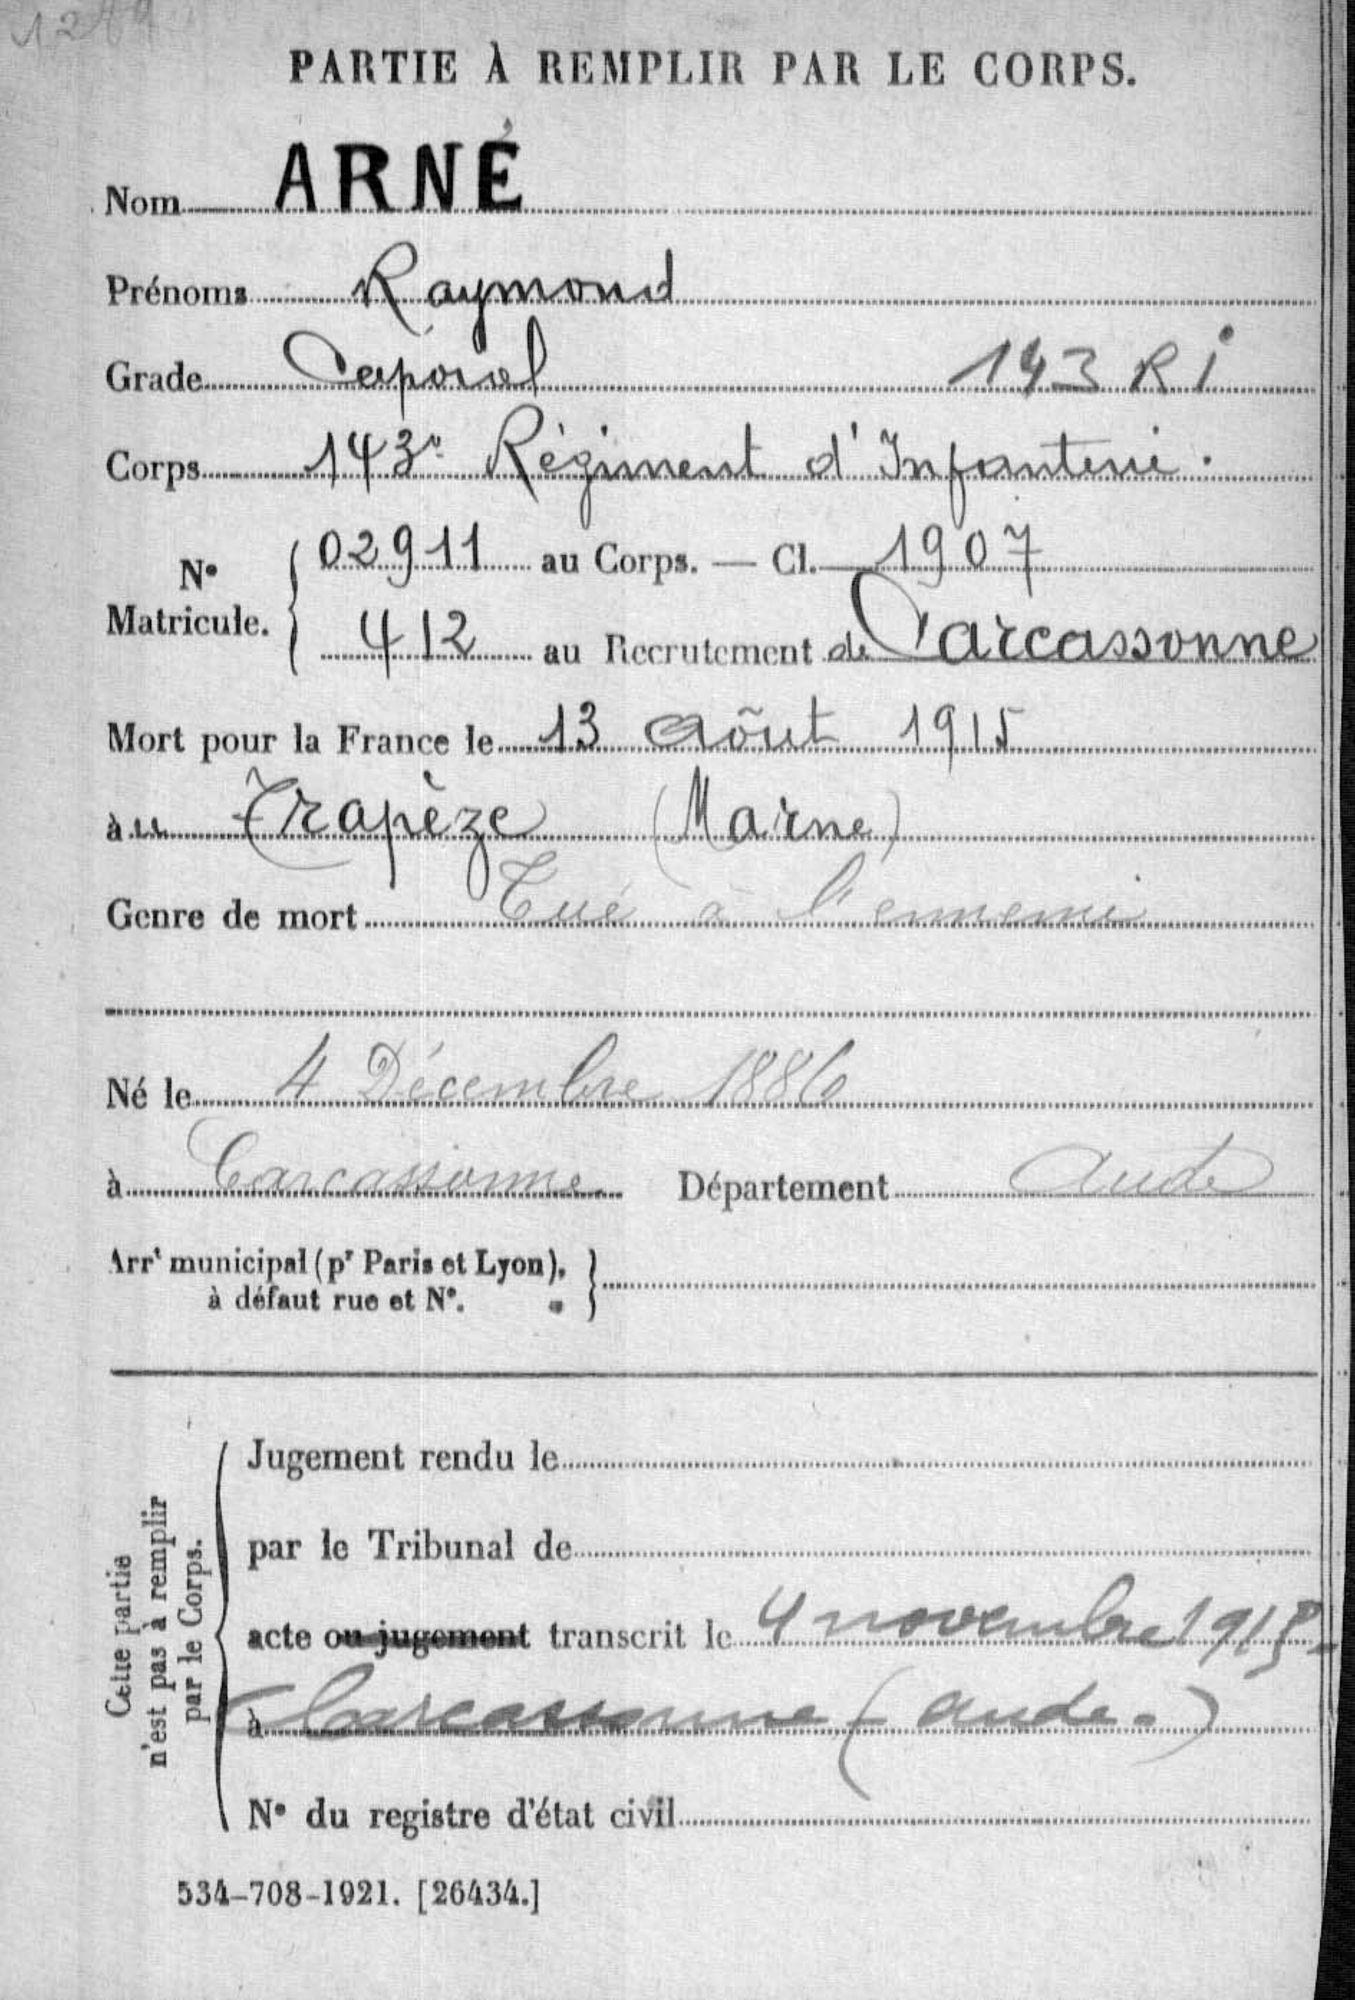 PARTIE À REMPLIR PAR LE CORPS.
Nom ARNÉ
Prénoms Raymond
Grade Caporal 143 RI
Corps 143e Régiment d'Infanterie.
No Matricule. 02911 au Corps. — Cl. 1907
412 au Recrutement de Carcassonne
Mort pour la France le 13 Août 1915
àu Trapèze (Marne)
Genre de mort Tué à l'ennemi
Né le 4 Décembre 1886
à Carcassonne Département Aude
Arrt municipal (pr Paris et Lyon),
à défaut rue et No.
Cette partie
n'est pas à remplir
par le Corps.
Jugement rendu le
par le Tribunal de
acte ou jugement transcrit le 4 novembre 1915
à Carcassonne (Aude.)
No du registre d'état civil
534-708-1921. [26434.]